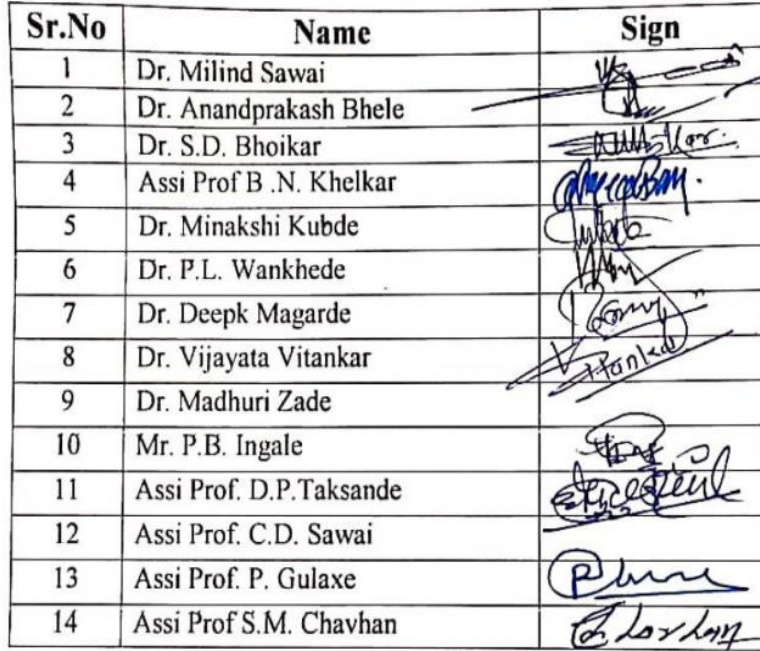 Sr.No Name Sign
1 Dr. Milind Sawai
2 Dr. Anandprakash Bhele
3 Dr. S.D. Bhoikar
4 Assi Prof B .N. Khelkar
5 Dr. Minakshi Kubde
6 Dr. P.L. Wankhede
7 Dr. Deepk Magarde
8 Dr. Vijayata Vitankar
9 Dr. Madhuri Zade
10 Mr. P.B. Ingale
11 Assi Prof. D.P.Taksande
12 Assi Prof. C.D. Sawai
13 Assi Prof. P. Gulaxe
14 Assi Prof S.M. Chavhan